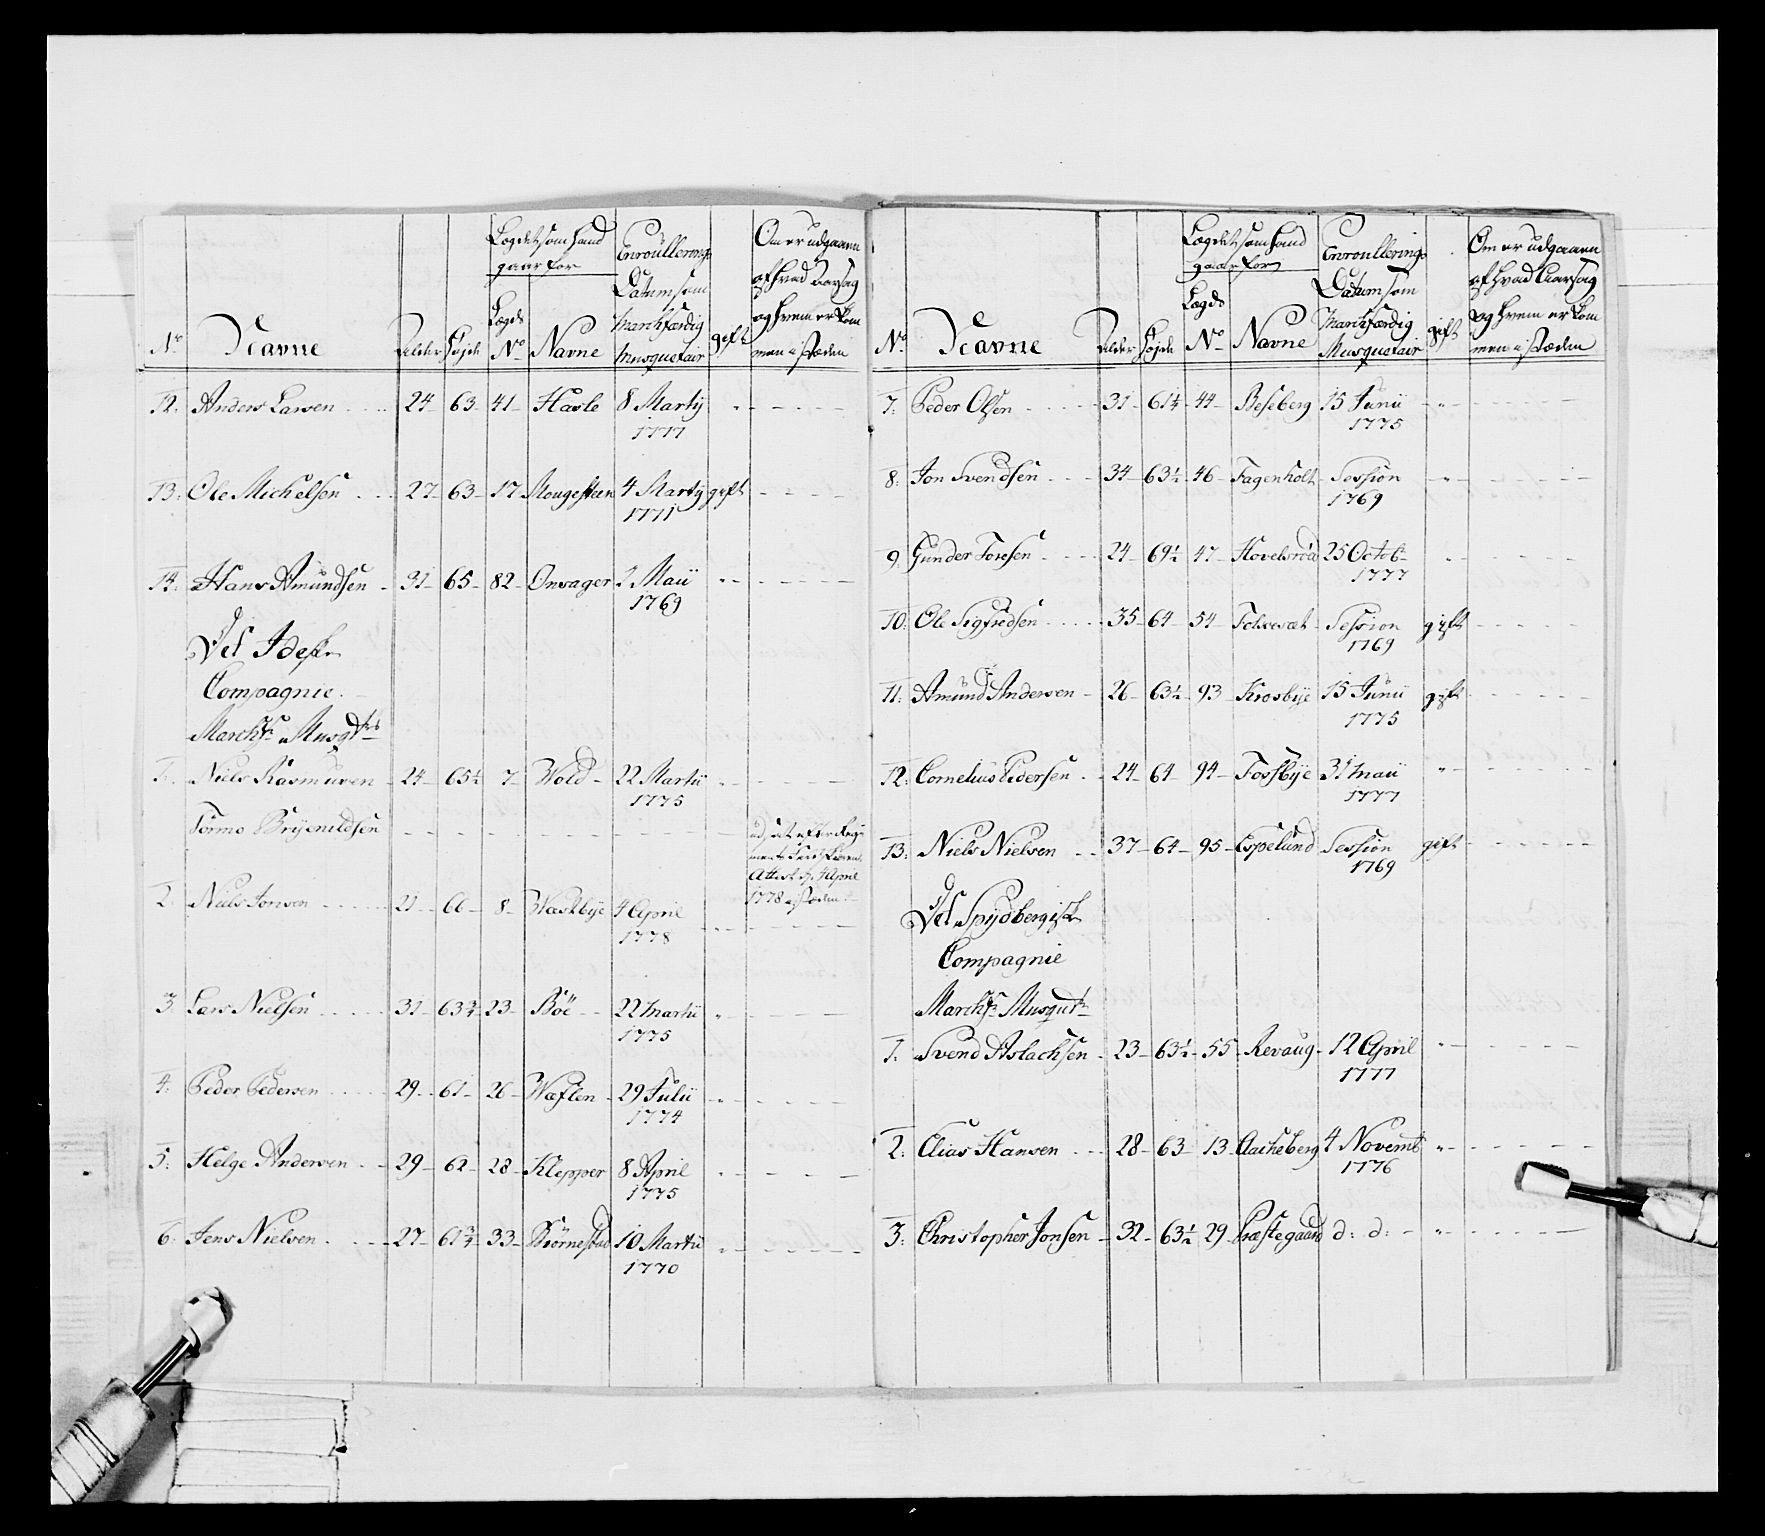 Lægdet som hand
gaar for
Enroullerings
Datum som
Marchfærdig
Musquetair
Om er udgaaen
af hvad Aarsag
og hvem er kom
men i Stæden
No Navne Alder Højde Lægds No Navne gift
12. Anders Larsen 24 63 41 Hasle 8 Martij
1777
13. Ole Michelsen 27 63 17 Mougesteen 4 Martij gift
1771
14. Hans Amundsen 31 65 82 Onsager 1 Maii
1769
Ved Idesk
Compagnie
Marchf. Musqtrs
1. Niels Rasmusen 24 65½ 7 Wold 22 Martii
1775
Tormo Brijenildsen
1778 i Stæden
2. Niels Jonsen 21 66 8 Wastbije 4 April
1778
3 Lars Nielsen 31 63¾ 23 Böe 22 Martii
1775
4. Peder Pedersen 29 61 26 Wæflen 29 Julii
1774
5. Helge Andersen 29 62 28 Klepper 8 April
1775
6. Jens Nielsen 27 61¾ 33 Biörnestad 10 Martii
1770
Lægdet som hand
gaar for
Enroullerings
Datum som
Marchfærdig
Musquetair
Om er udgaaen
af hvad Aarsag
og hvem er kom
men i Stæden
No Navne Alder Højde Lægds No Navne gift
7. Peder Olsen 31 61¼ 44 Beseberg 15 Junii
1775
8. Jon Svendsen 34 63½ 46 Fagenholt Session
1769
9. Gunder Toresen 24 69½ 47 Hovelsröd 25 Octob
1777
10. Ole Sigfredsen 35 64 54 Session gift
1769
11. Amund Andersen 26 63½ 93 Krosbije 15 Junii gift
1775
12. Cornelius Pedersen 24 64 94 Fossbije 31 Maii
1777
13. Niels Nielsen 37 64 95 Espelund Session gift
1769
Ved Spijdbergisk
Compagnie
Marchf. Musqut
1. Svend Aslachsen 23 63½ 55 Revaug 12 April
1777
2. Elias Hansen 28 63 13 Aacheberg 4 Novemb
1776
3. Christopher Jonsen 32 63½ 29 Præstegaard d: d: